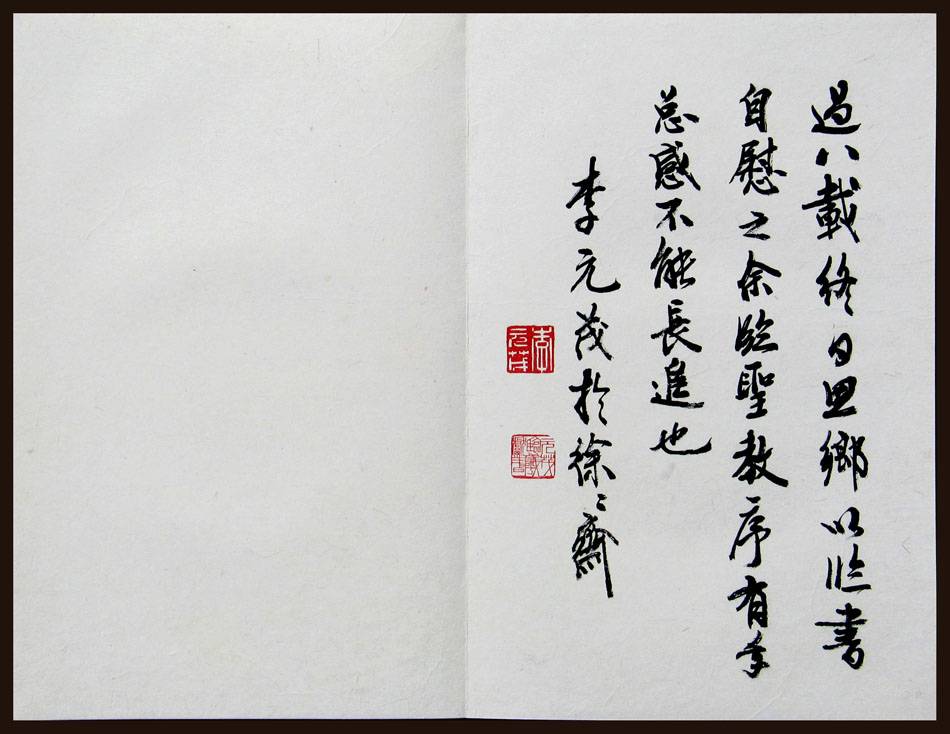 過八載終日思鄉以臨書
自慰之余臨聖教序有年
總感不能長進也
李元茂於徐〻齋
李元茂